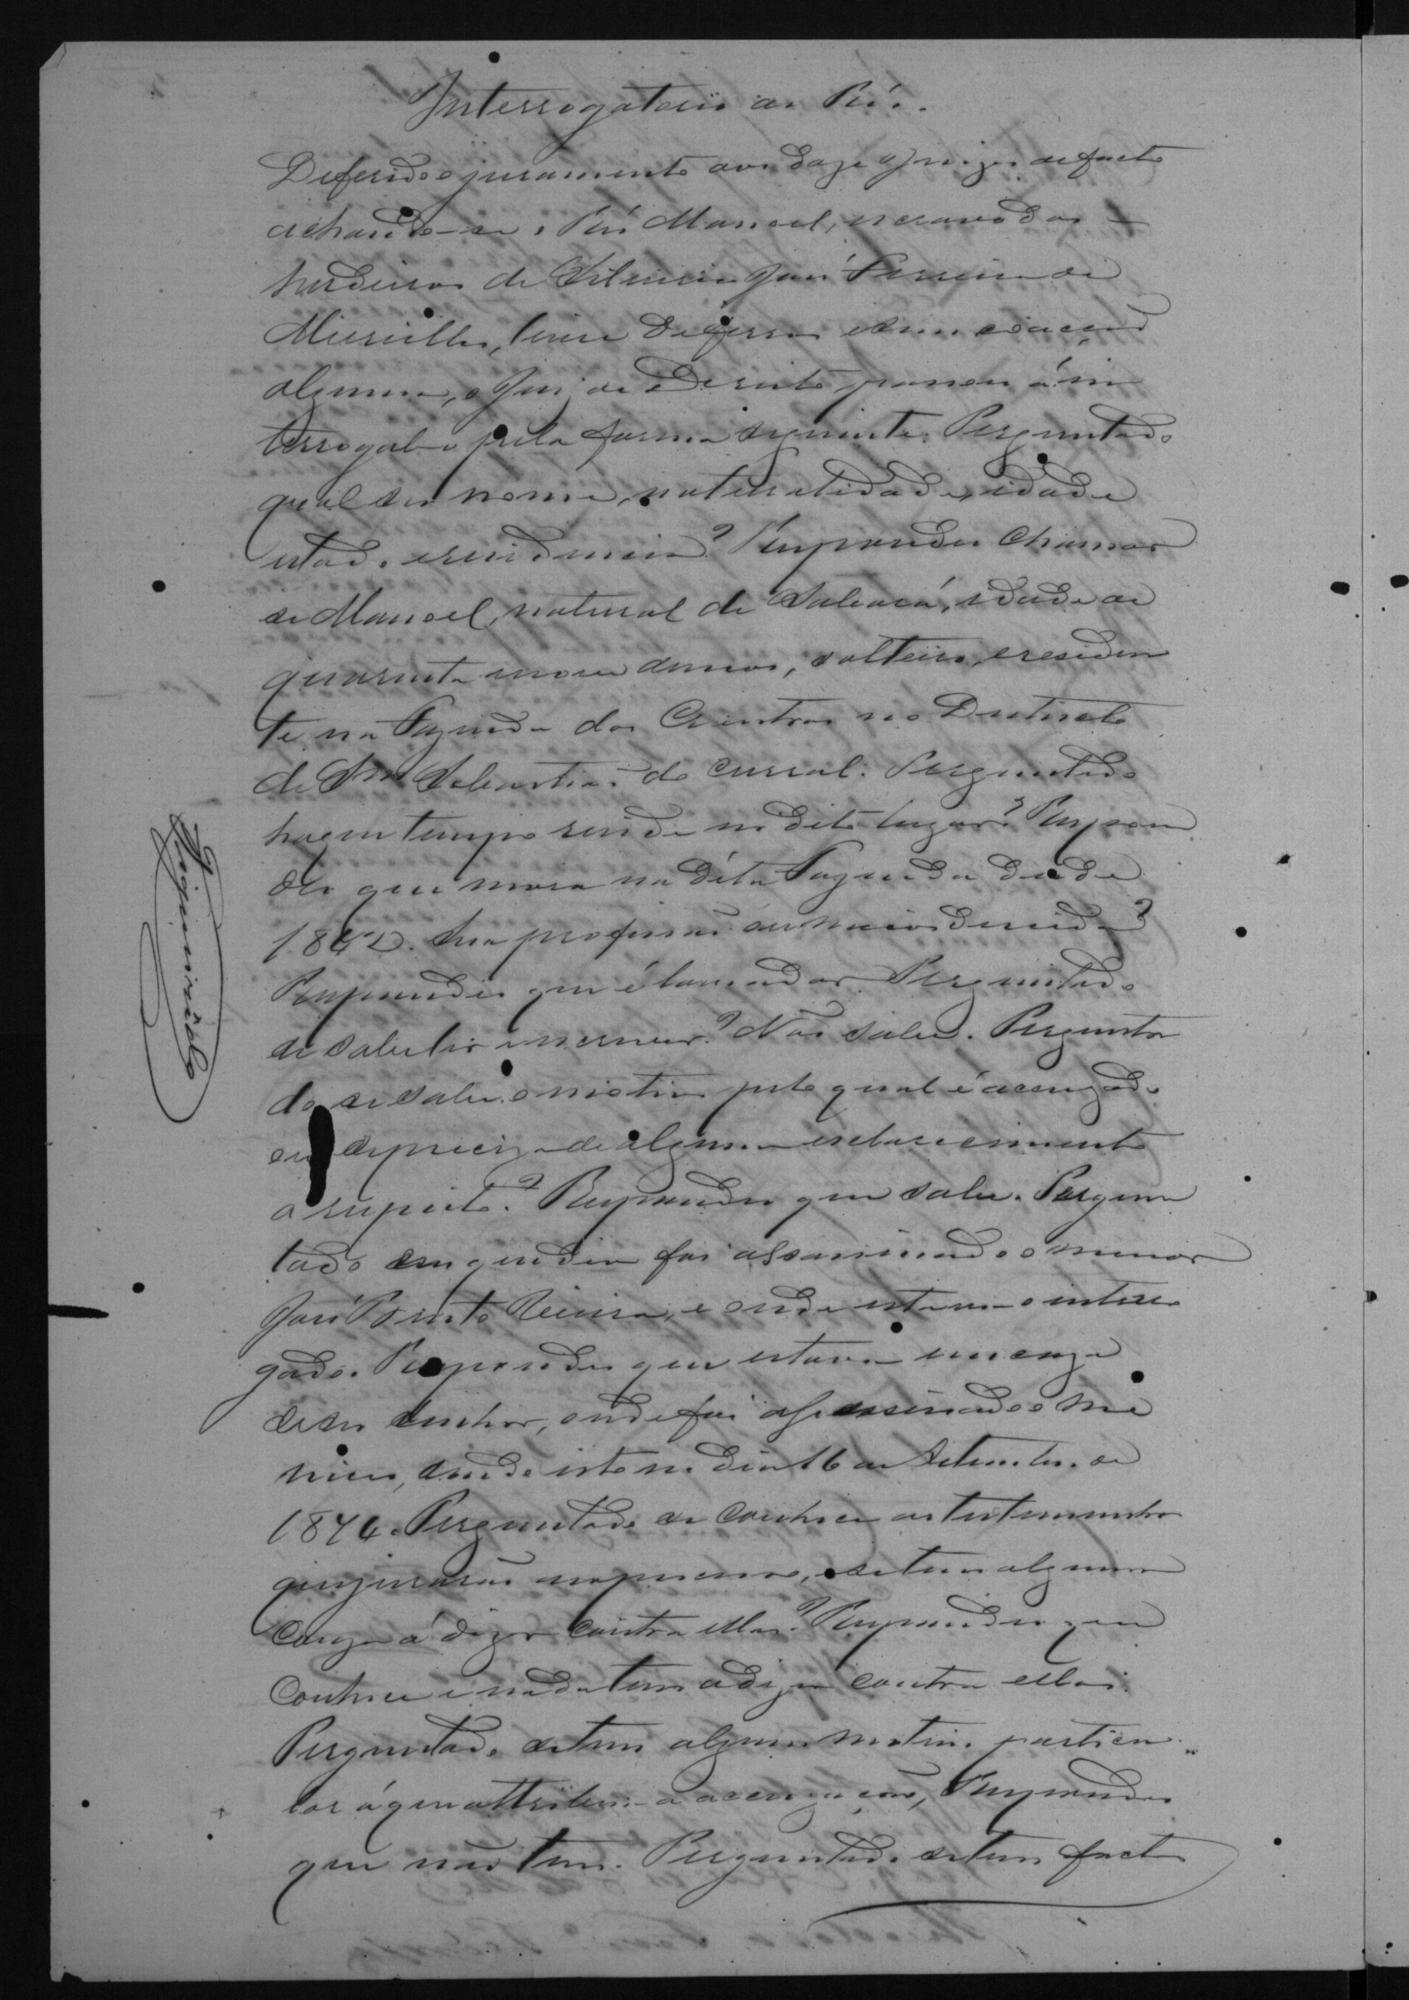 Interrogatorio ao Réo.
Deferido o juramento aos doze Juizes de facto
achando-se o Réo Manoel, escravo dos
herdeiros de José Ferreira de
livre de ferros e sem coacção
alguma, o Juiz de Direito passou á in
terrogal-o pela forma seguinte. Perguntado
qual seu nome, naturalidade, idade
estado e residencia? Respondeu chamar
se Manoel, natural de idade de
quarenta e nove annos, solteiro, e residen
te na Fazenda dos no Districto
de Sm Sebastião do Curral. Perguntado
ha que tempo reside no dito lugar? Respon
deu que mora na dita Fazenda desde
Sua profissão ou meios de vida?
Respondeu que é Perguntado
se sabe ler e escrever? Não sabe. Pergunta
do se sabe o motivo pelo qual é accuzado
ou se precisa de algum esclarecimento
a respeito? Respondeu que sabe. Pergun
tado em que dia foi assassinado o menor
José Bento Vieira, e onde estava o interro
gado. Respondeu que estava em caza
de seu senhor, onde foi assassinado o me
nino, sendo isto no dia 16 de Setembro de
1874. Perguntado se conhece as testemunhas
que juraram no processo, e se tem alguma
couza á dizer contra ellas? Respondeu que
conhece e nada tem a dizer contra ellas.
Perguntado se tem algum motivo particu
lar á que attribua a accuzação, Respondeu
que não tem. Perguntado se tem factos